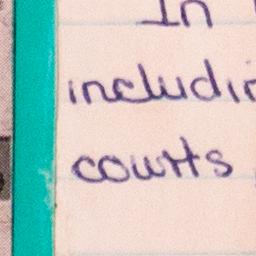 In
includin
courts